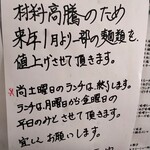 材料高騰のため
来年1月より一部の麺類を、
値上げさせて頂きます。
※尚土曜日のランチは、終了します。
ランチは、月曜日から金曜日の
平日のみとさせて頂きます。
宜しくお願いします。